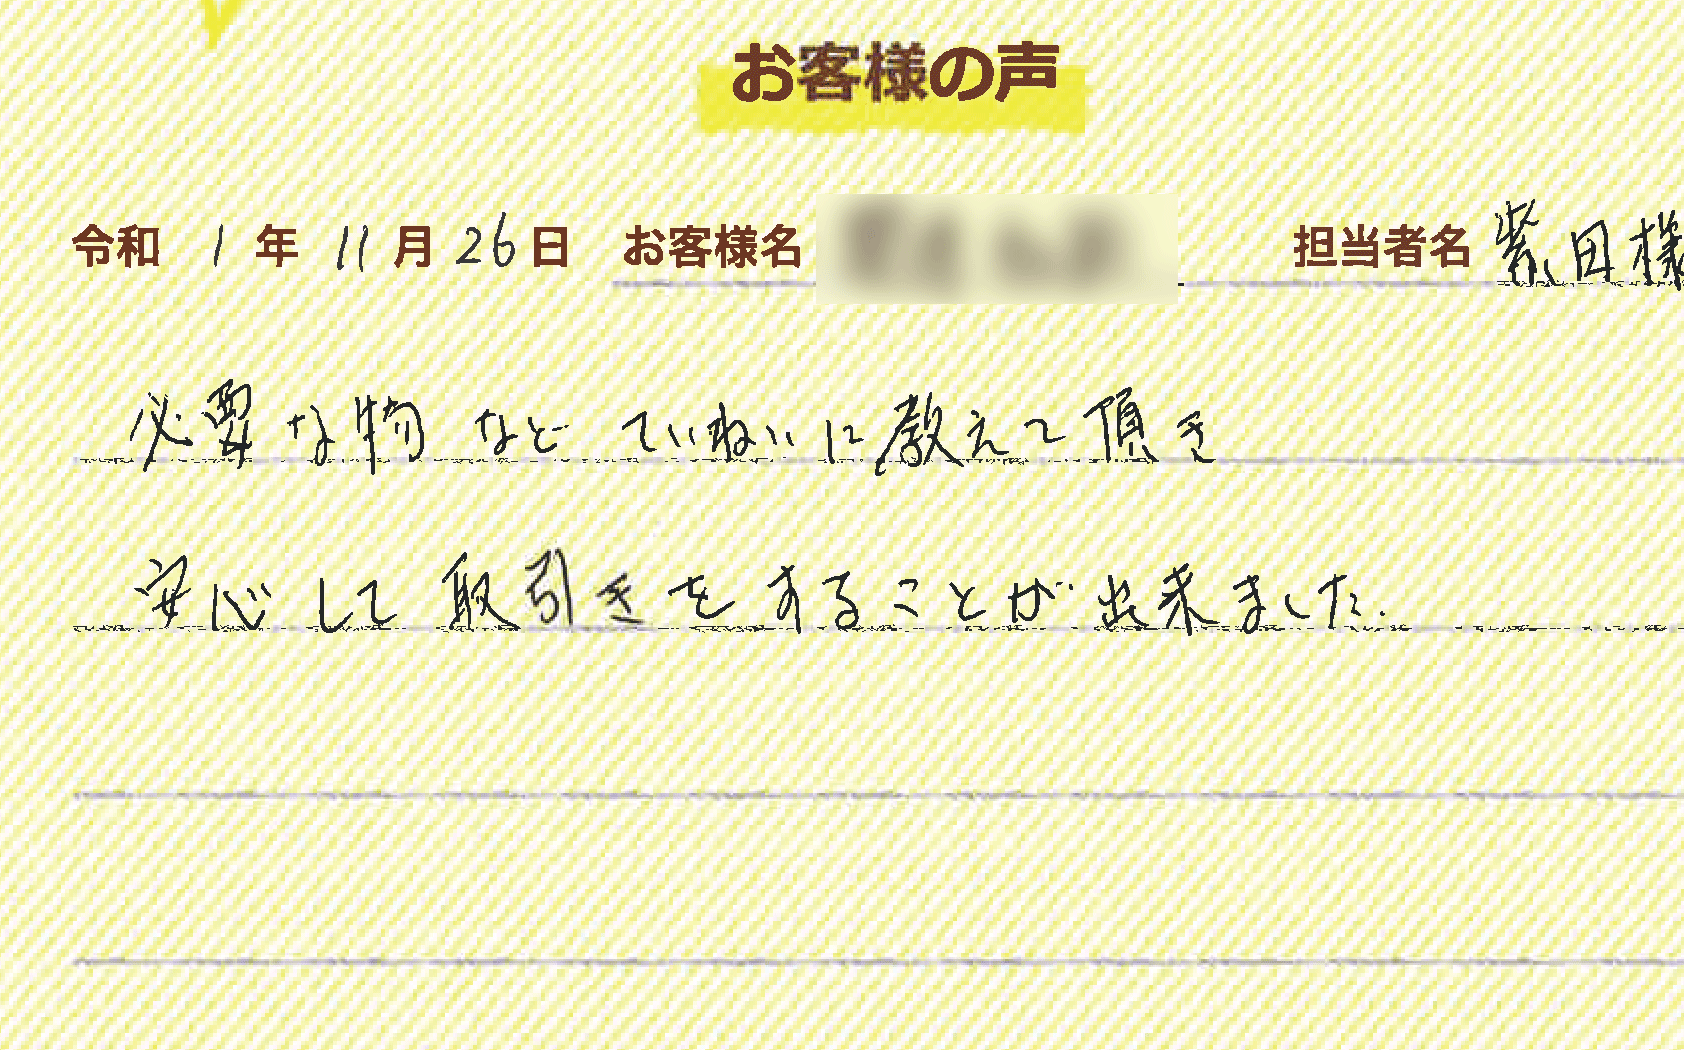 お客様の声
令和 1 年 11 月 26 日 お客様名 担当者名 柴田様
必要な物などていねいに教えて頂き
安心して取引きをすることが出来ました.